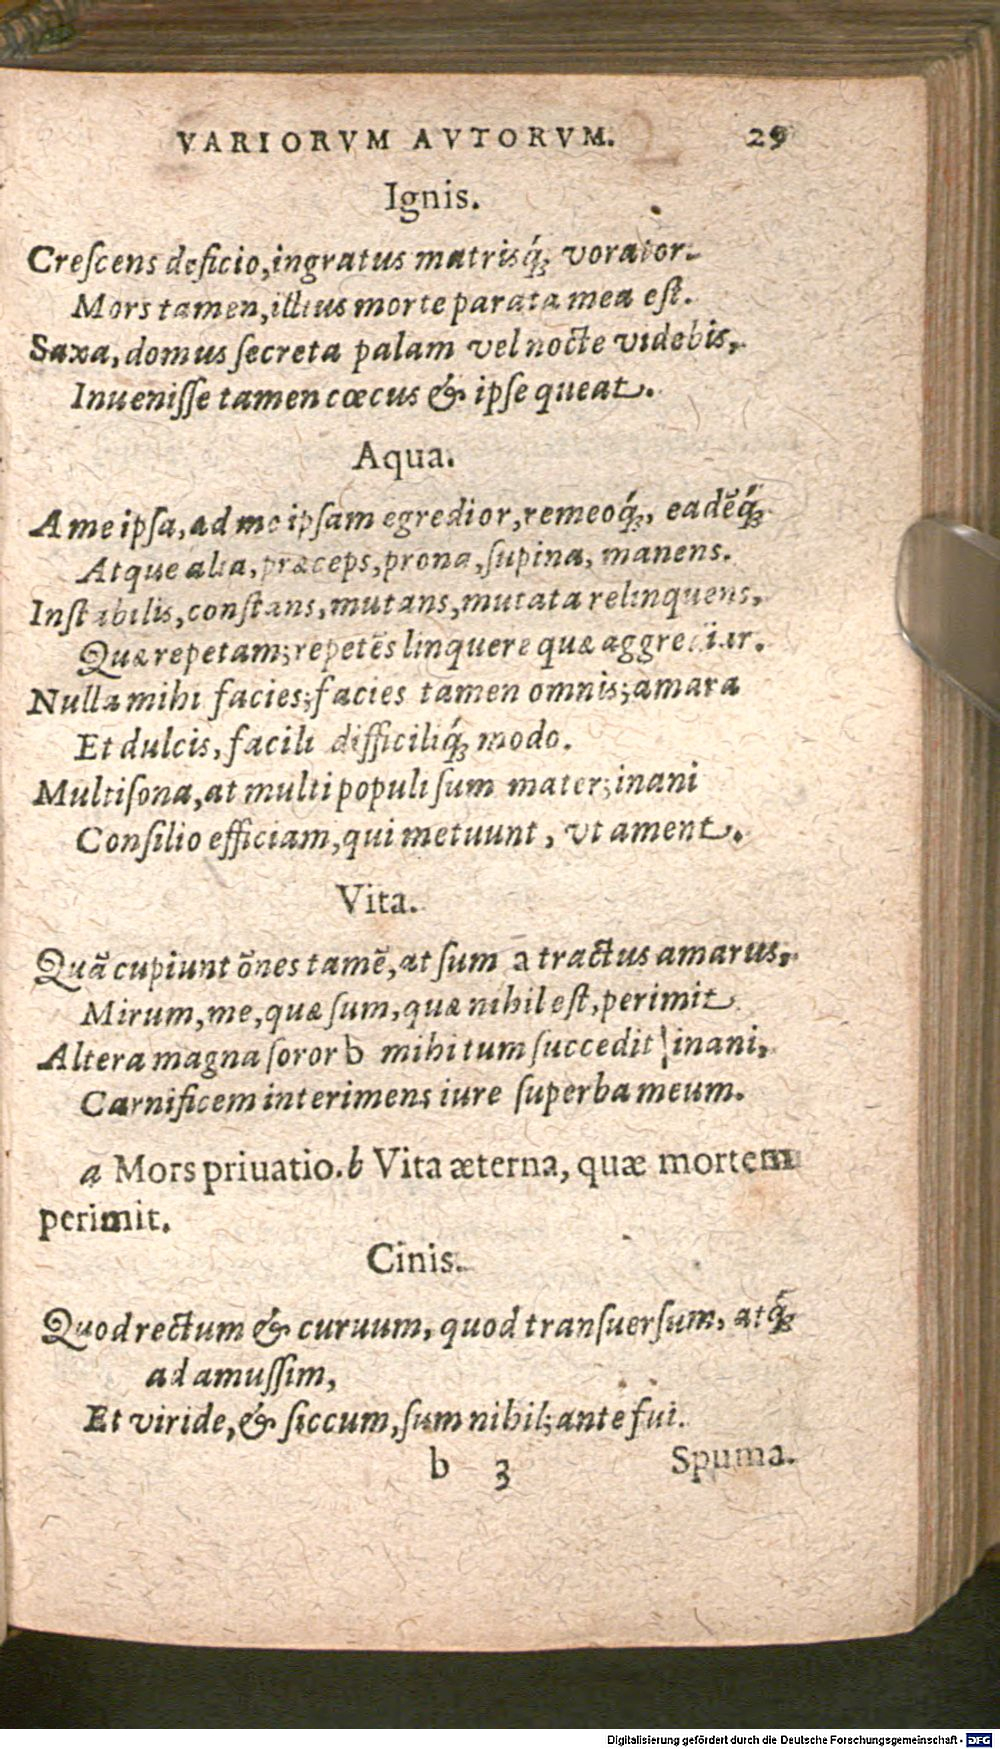 VARIORVM AVTORVM. 29
Ignis.
Creſcens deficio, ingratus matrisq́; vorator.
Mors tamen, illius morte parata mea eſt.
Saxa, domus ſecreta palam vel nocte videbis,
Inueniſſe tamen cœcus & ipſe queat.
Aqua.
A me ipſa, ad me ipſam egredior, remeoq́;, eadēq́;
Atque alia, præceps, prona, ſupina, manens.
Inſtabilis, conſtans, mutans, mutata relinquens,
Quæ repetam; repetēs linquere quæ aggrediar.
Nulla mihi facies; facies tamen omnis; amara
Et dulcis, facili difficiliq́; modo.
Multiſona, at multi populi ſum mater; inani
Conſilio efficiam, qui metuunt, vt ament.
Vita.
Quā cupiunt ōnes tamē, at ſum a tractus amarus,
Mirum, me, quæ ſum, quæ nihil eſt, perimit
Altera magna ſoror b mihi tum ſuccedit inani,
Carnificem interimens iure ſuperba meum.
a Mors priuatio. b Vita æterna, quæ mortem
perimit.
Cinis.
Quod rectum & curuum, quod transuerſum, atq́;
ad amuſſim,
Et viride, & ſiccum, ſum nihil; ante fui.
b 3 Spuma.
Digitalisierung gefördert durch die Deutsche Forschungsgemeinschaft - DFG